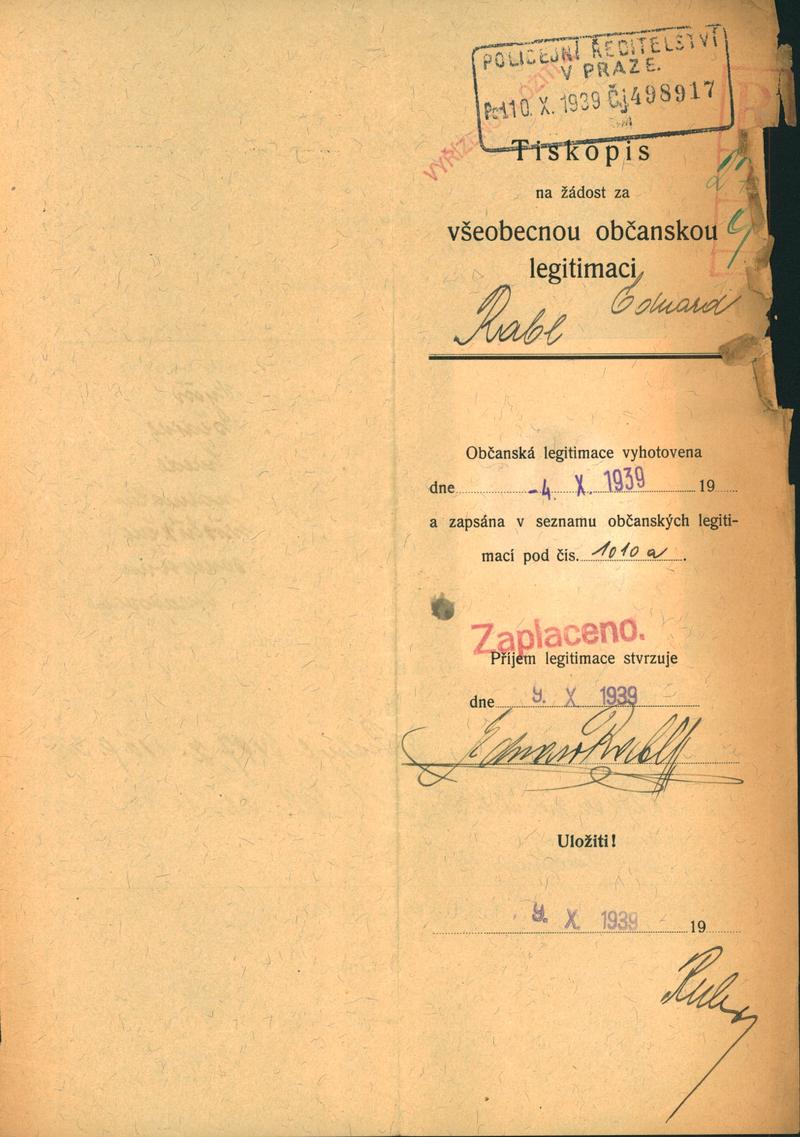 POLICEJNÍ ŘEDITELSTVÍ
V PRAZE.
10. X. 1939 Čj 498917
Tiskopis
na žádost za
všeobecnou občanskou
legitimaci
Rabl Eduard
Občanská legitimace vyhotovena
dne -4. X. 1939 19
a zapsána v seznamu občanských legiti-
mací pod čís. 1010 a.
Zaplaceno.
Příjem legitimace stvrzuje
dne 9. X 1939
Eduard Rabl
Uložiti!
9. X 1939 19